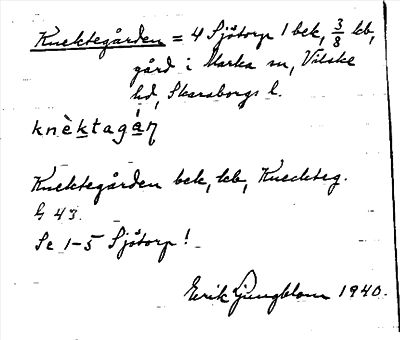 Knektegården = 4 Sjötorp 1 bek, 3/8 kb,
gård i Marka sn, Vilske
hd, Skaraborgs l.
knèktagáŋ
Knektegården bek, kb, Kneckteg.
G 43.
Se 1-5 Sjötorp!
Erik Ljungblom 1940.